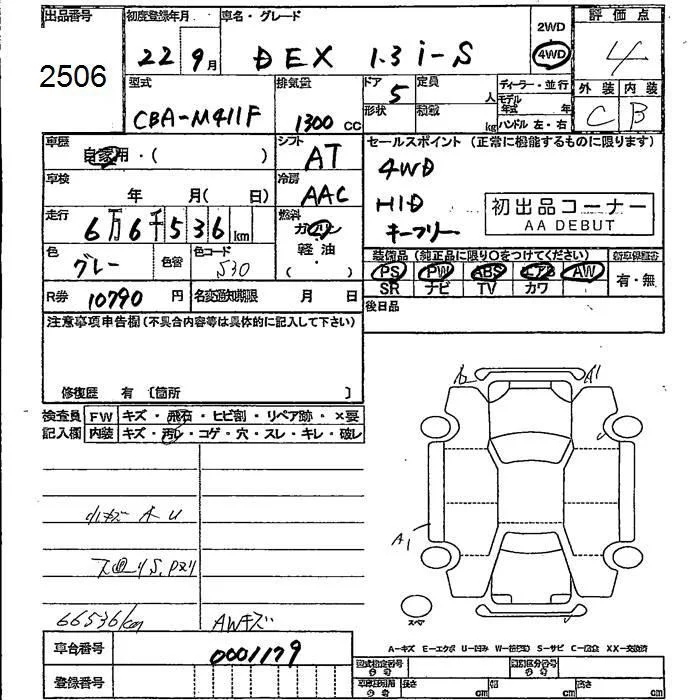 出品番号
2506
初度登録年月
22 9月
車名・グレード
DEX 1.3 i-S
2WD
4WD
評価点
4
外装 内装
C B
型式
CBA-M411F
排気量
1300 CC
ドア 5
形状
定員 人
積載 kg
ディーラー・並行
モデル年式 年
ハンドル 左・右
車歴
自家用・( )
シフト
AT
車検
年 月( 日)
冷房
AAC
走行
6万6千536km
燃料
ガソリン
軽油
( )
色
グレー
色替
色コード
S30
R券 10790 円
名変通知期限 月 日
セールスポイント (正常に機能するものに限ります)
4WD
HID
キーフリー
初出品コーナー
AA DEBUT
装備品 (純正品に限り〇をつけてください)
PS PW ABS エアB AW
SR ナビ TV カワ
新車保証書
有・無
後日品
注意事項申告欄(不具合内容等は具体的に記入して下さい)
修復歴 有 〔箇所 〕
検査員
記入欄
FW キズ・飛石・ヒビ割・リペア跡・×要
内装 キズ・汚レ・コゲ・穴・スレ・キレ・破レ
小キズ A U
66536km
AWキズ
A1
A1
スペア
A-キズ E-エクボ U-凹み S-サビ XX-交換済
車台番号
0001179
登録番号
型式指定番号
類別区分番号
長さ cm
幅 cm
高さ cm